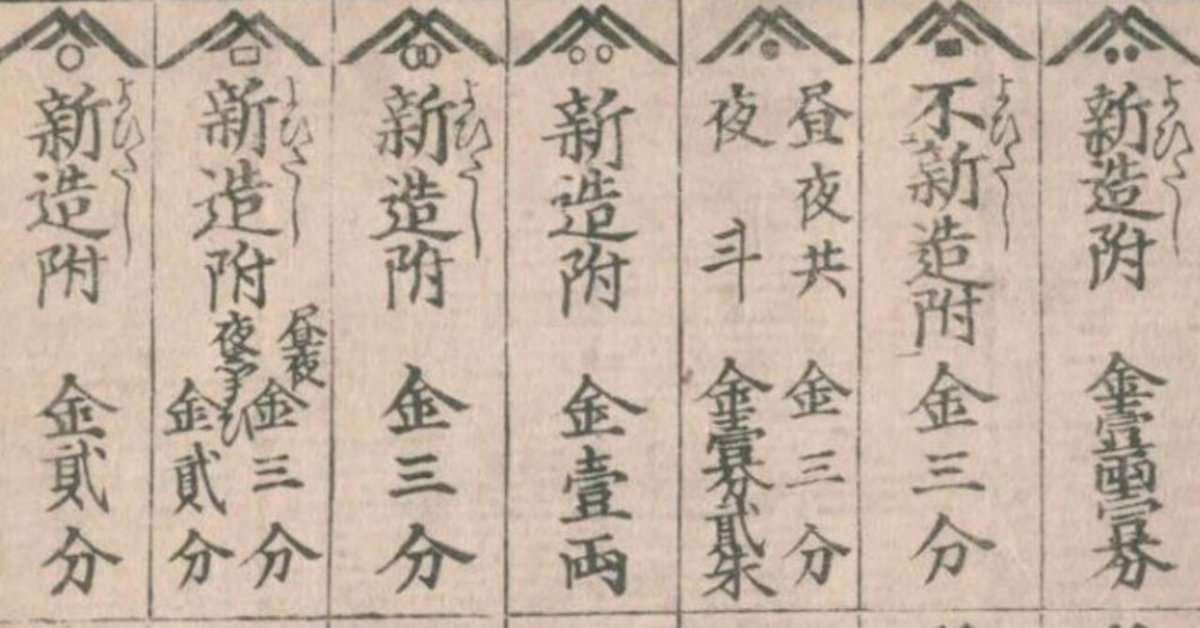 よびだし
新造附 金壹兩壹分
よびだし
不新造附 金三分
昼夜共 金三分
夜斗 金壹分貳朱
新造附 金壹両
よびだし
新造附 金三分
よびだし
新造附
昼夜 金三分
金貳分
よびだし
新造附 金貳分